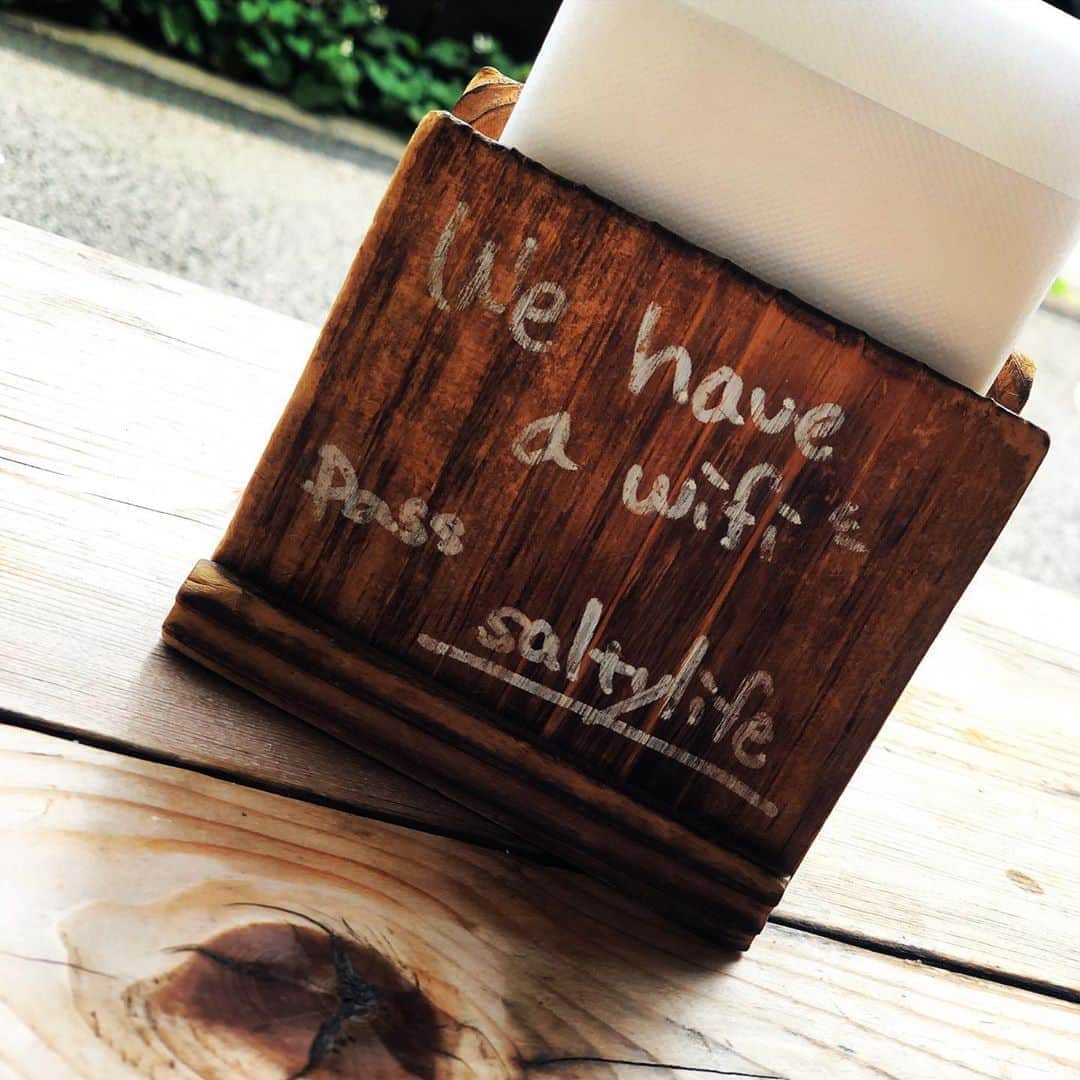 We have
a wifi
Pass
saltylife